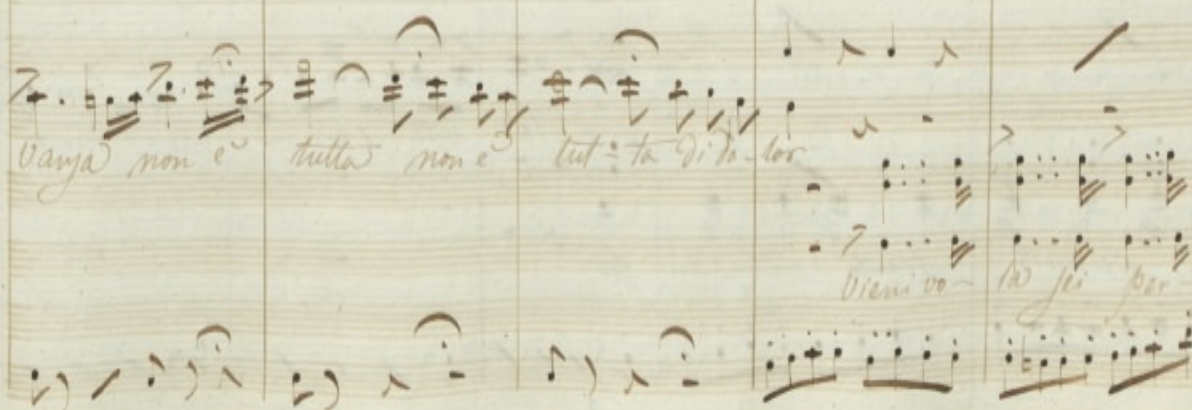 vanza non è tutta non è tut - ta di do - lor
Vieni vo - la sei per